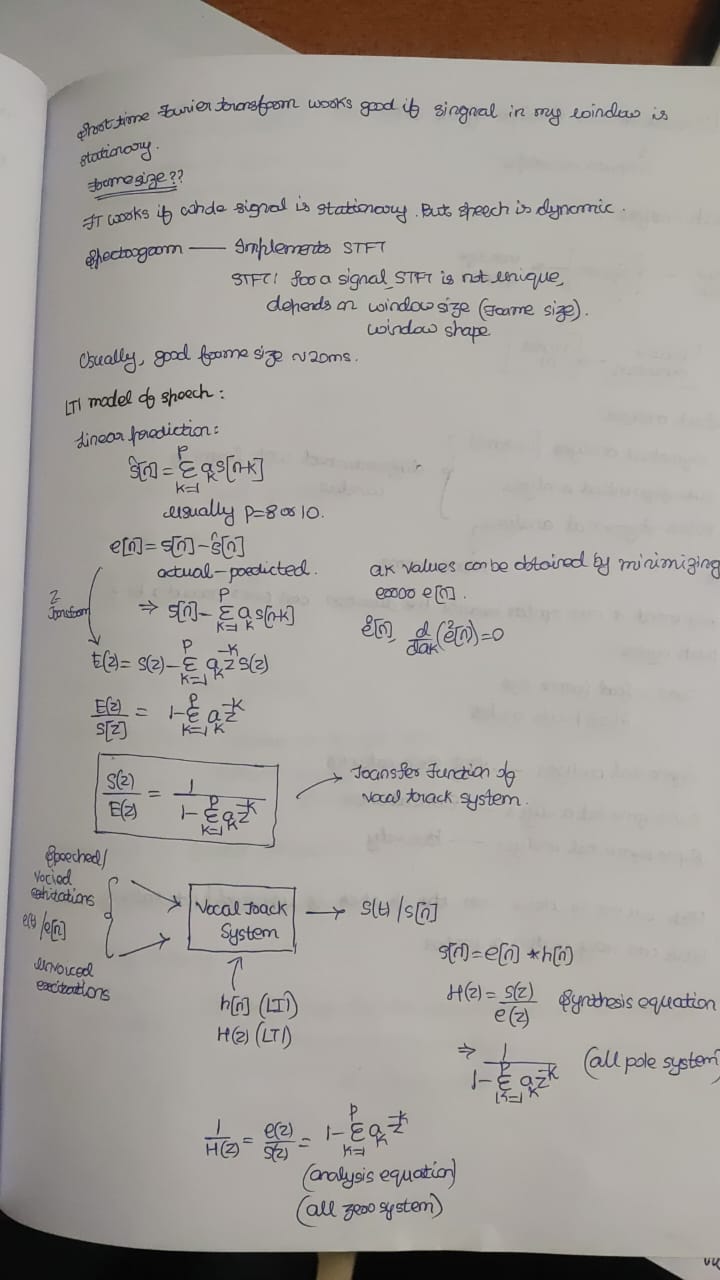 Short time Fourier transform works good if singnal in my window is
stationary.
Frame size??
FT works if whole signal is stationary. But speech is dynamic.
Spectrogram — Implements STFT
STFT: for a signal STFT is not unique,
depends on window size (Frame size).
window shape
Usually, good frame size ~20ms.
LTI model of speech:
Linear prediction:
ŝ[n] = Σ_{k=1}^{P} a_k s[n-k]
usually P=8 or 10.
e[n] = s[n] - ŝ[n]
actual - predicted.
ak values can be obtained by minimizing
error e[n].
Z Transform
⇒ s[n] - Σ_{k=1}^{P} a_k s[n-k]
e²[n], d/dak (e²[n]) = 0
E(z) = S(z) - Σ_{k=1}^{P} a_k z^{-k} S(z)
E(z)/S[z] = 1 - Σ_{k=1}^{P} a_k z^{-k}
S(z)/E(z) = 1/(1 - Σ_{k=1}^{P} a_k z^{-k})
→ Transfer Function of
vocal track system.
Speeched/
vocied
exhitations
e(t)/e[n]
unvoiced
excitations
Vocal Track
System
→ s(t)/s[n]
h[n] (LTI)
H(z) (LTI)
s[n] = e[n] * h[n]
H(z) = S(z)/e(z) Synthesis equation
⇒ 1/(1 - Σ_{k=1}^{P} a_k z^{-k}) (all pole system)
1/H(z) = e(z)/S(z) = 1 - Σ_{k=1}^{P} a_k z^{-k}
(analysis equation)
(all zero system)